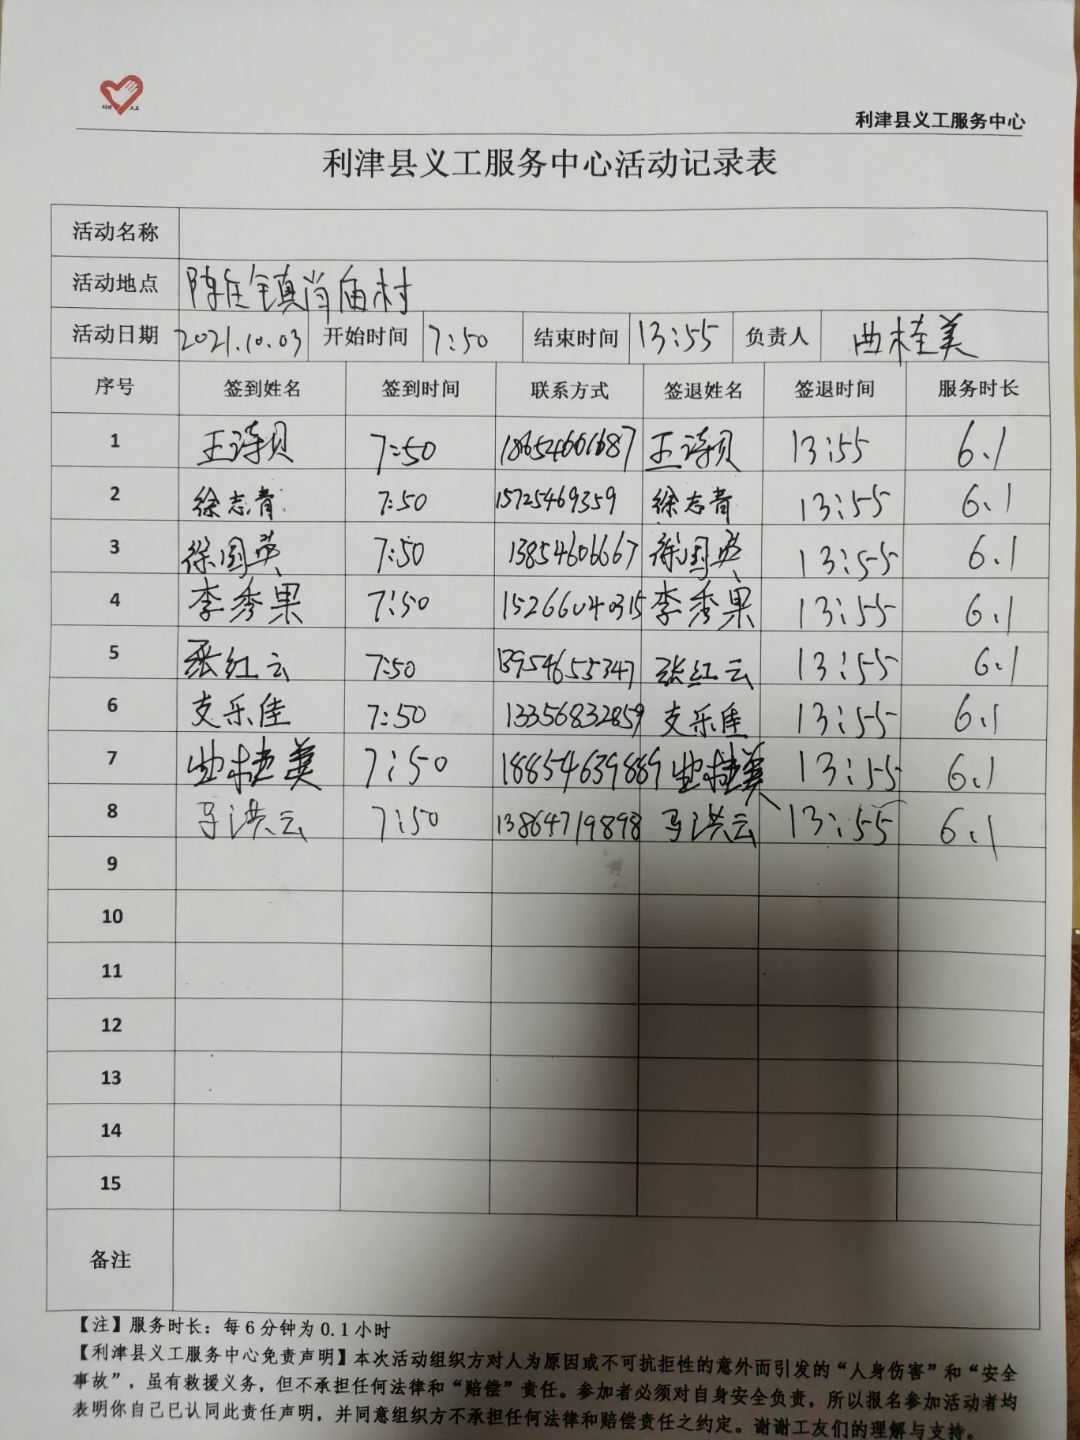 利津县义工服务中心
利津县义工服务中心活动记录表
活动名称
活动地点 陈庄镇肖庙村
活动日期 2021.10.03 开始时间 7:50 结束时间 13:55 负责人 曲桂美
序号 签到姓名 签到时间 联系方式 签退姓名 签退时间 服务时长
1 王诗贝 7:50 18654601687 王诗贝 13:55 6.1
2 徐志青 7:50 15725469359 徐志青 13:55 6.1
3 徐国英 7:50 13854606667 徐国英 13:55 6.1
4 李秀果 7:50 15266040315 李秀果 13:55 6.1
5 张红云 7:50 13954655347 张红云 13:55 6.1
6 支乐佳 7:50 13356832859 支乐佳 13:55 6.1
7 曲桂美 7:50 18854639889 曲桂美 13:55 6.1
8 马洪云 7:50 13864719898 马洪云 13:55 6.1
9
10
11
12
13
14
15
备注
【注】服务时长：每6分钟为0.1小时
【利津县义工服务中心免责声明】本次活动组织方对人为原因或不可抗拒性的意外而引发的“人身伤害”和“安全
事故”，虽有救援义务，但不承担任何法律和“赔偿”责任。参加者必须对自身安全负责，所以报名参加活动者均
表明你自己已认同此责任声明，并同意组织方不承担任何法律和赔偿责任之约定。谢谢工友们的理解与支持。